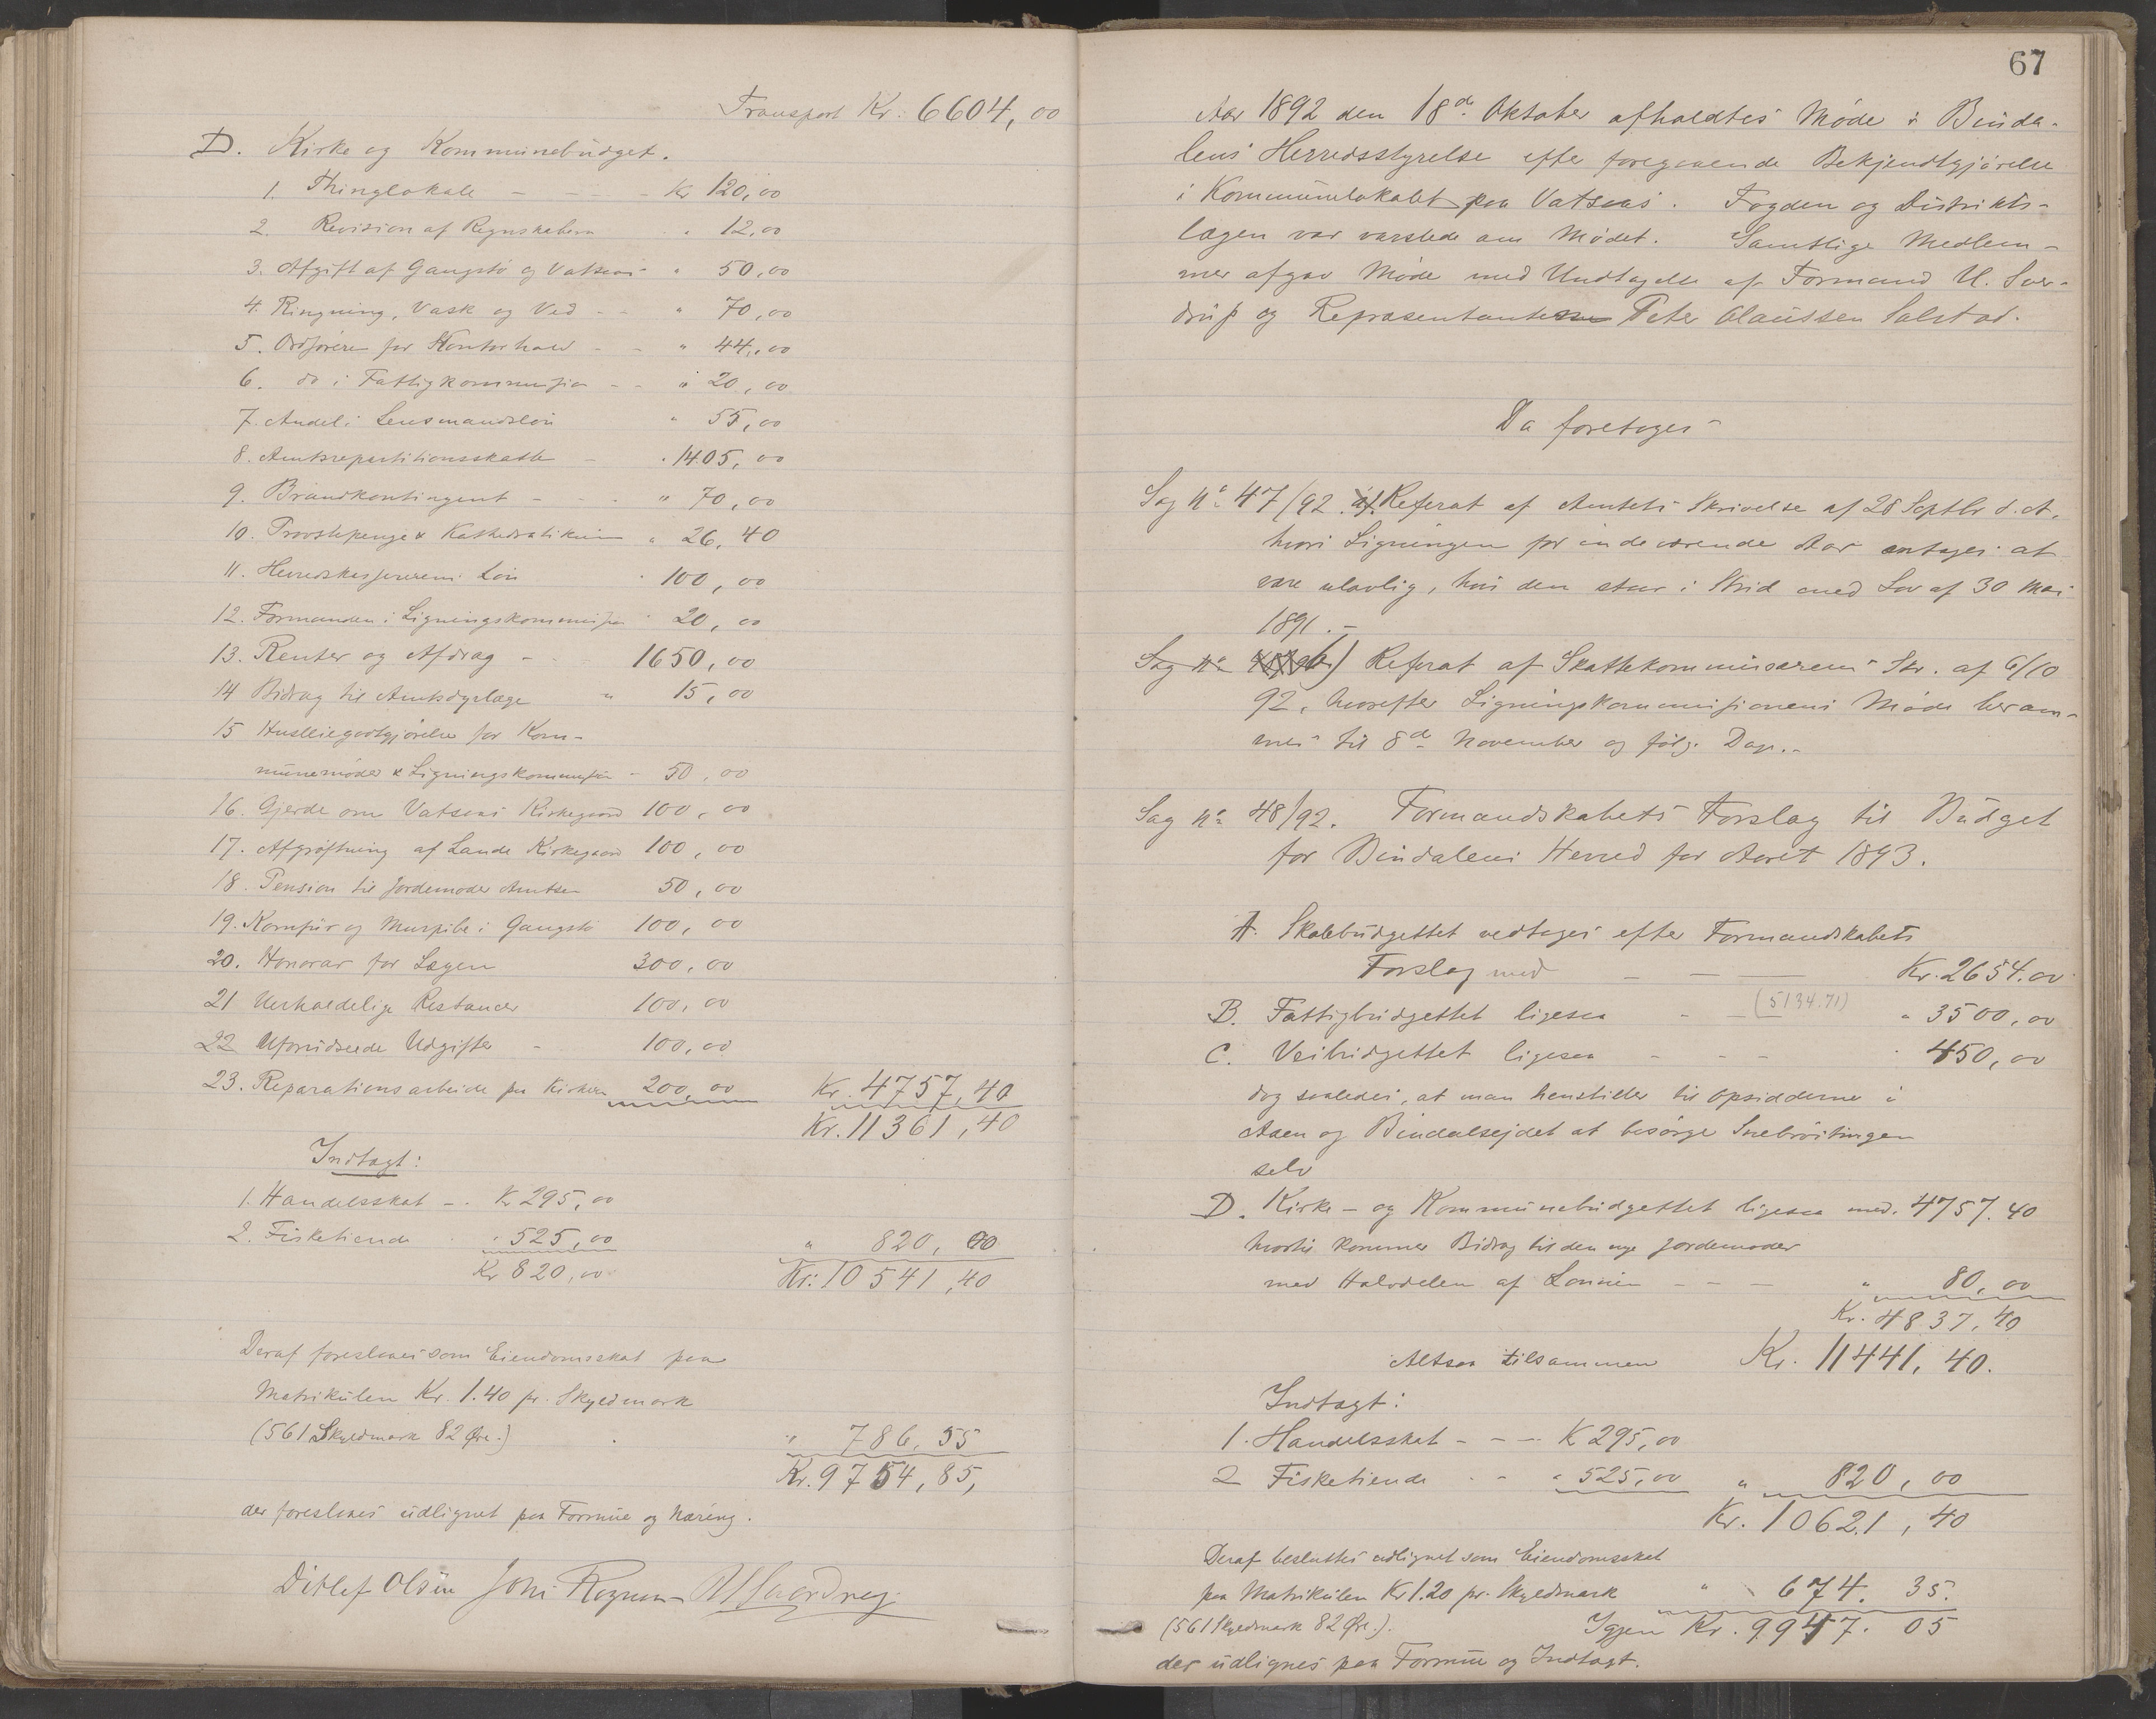 Transport Kr. 6604,00
D. Kirke og Kommunebudget.
1. Thinglokale - - - - Kr 120,00
2. Revision af Regnskaberne " 12,00
3. Afgift af Gangstö og Vatsaas - " 50,00
4. Ringning, Vask og Ved - - " 70,00
5. Ordföreren for Kontorhold - - " 44,00
6. do i Fattigkommission - - " 20,00
7. Andel i Lensmandslön " 55,00
8. Amtsrepartitionsskatte - " 1405,00
9. Brandkontingent - - - " 70,00
10. Provstepenge & Kathedratikum " 26,40
11. Herredskassererens Lön " 100,00
12. Formanden i Ligningskommission " 20,00
13. Renter og Afdrag - - 1650,00
14 Bidrag til Amtsdyrlæge " 15,00
15 Husleiegodtgjörelse for Kom-
munemöder & Ligningskommission - 50,00
16. Gjerde om Vatsaas Kirkegaard 100,00
17. Afgröftning af Lande Kirkegaard 100,00
18. Pension til Jordemoder Amtsen 50,00
19. Komfür og Murpibe i Gangstö 100,00
20. Honorar for Lægen 300,00
21 Uerholdelige Restancer 100,00
22 Uforudseede Udgifter - 100,00
23. Reparationsarbeide paa Kirken 200,00 Kr. 4757,40
Kr. 11361,40
Indtægt:
1. Handelsskat - - Kr 295,00
2. Fisketiende " 525,00 " 820,00
Kr 820,00 Kr. 10541,40
Deraf foreslaaes som Eiendomsskat paa
Matrikulen Kr. 1.40 pr. Skyldmark
(561 Skyldmark 82 Øre.) " 786,55
Kr. 9754,85,
der foreslaaes udlignet paa Formue og Næring.
Ditlef Olsen Johs Rognan
67
Aar 1892 den 18de Oktober afholdtes Möde i Binda-
lens Herredsstyrelse efter foregaaende Bekjendtgjörelse
i Kommunelokalet paa Vatsaas. Fogden og Distrikts-
lægen var varslede om Mödet. Samtlige Medlem-
mer afgav Möde med Undtagelse af Formand U. Sver-
drup og Repræsentanten Peter Claussen Salstad.
Da foretoges
Sag No 47/92. a) Referat af Amtets Skrivelse af 28 Septbr d. A.
hvori Ligningen for indeværende Aar antages at
være ulovlig, hvis den staar i Strid med Lov af 30 Mai
1891. -
Sag No b) Referat af Skattekommissærens Skr. af 6/10
92, hvorefter Ligningskommissionens Möde beram-
mes til 8de November og fölg. Dage. -
Sag No 48/92. Formandskabets Forslag til Budget
for Bindalens Herred for Aaret 1893.
A. Skolebudgettet vedtoges efter Formandskabets
Forslag med - - - Kr. 2654.00
B. Fattigbudgettet ligesaa - - (5134.71) " 3500,00
C. Veibudgettet ligesaa - - - " 450,00
dog saaledes, at man henstiller til Opsidderne i
Aaen og Bindalsejdet at besörge Snebröitningen
selv
D. Kirke- og Kommunebudgettet ligesaa med. 4757.40
hvortil kommer Bidrag til den nye Jordemoder
med Halvdelen af Lönnen - - - " 80,00
Kr. 4837,40
Altsaa tilsammen Kr. 11441,40.
Indtægt:
1. Handelsskat - - - K 295,00
2 Fisketiende - - " 525,00 " 820,00
Kr. 10621,40
Deraf besluttes udlignet som Eiendomsskat
paa Matrikulen Kr 1.20 pr. Skyldmark " 674.35.
(561 Skyldmark 82 Øre.). Igjen Kr. 9947.05
der udlignes paa Formue og Indtægt.